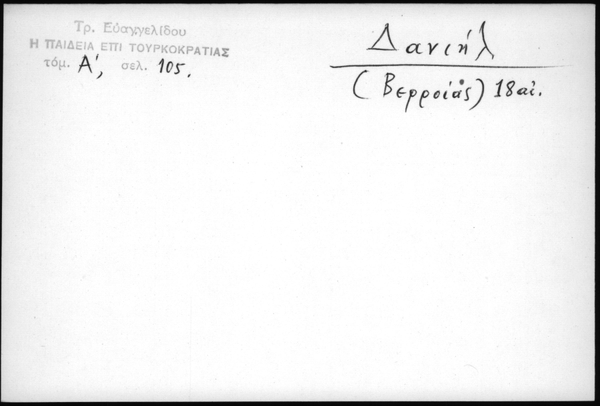 Τρ. Εὐαγγελίδου
Η ΠΑΙΔΕΙΑ ΕΠΙ ΤΟΥΡΚΟΚΡΑΤΙΑΣ
τόμ. Α', σελ. 105.
Δανιήλ
(Βερροίας) 18 αἰ.